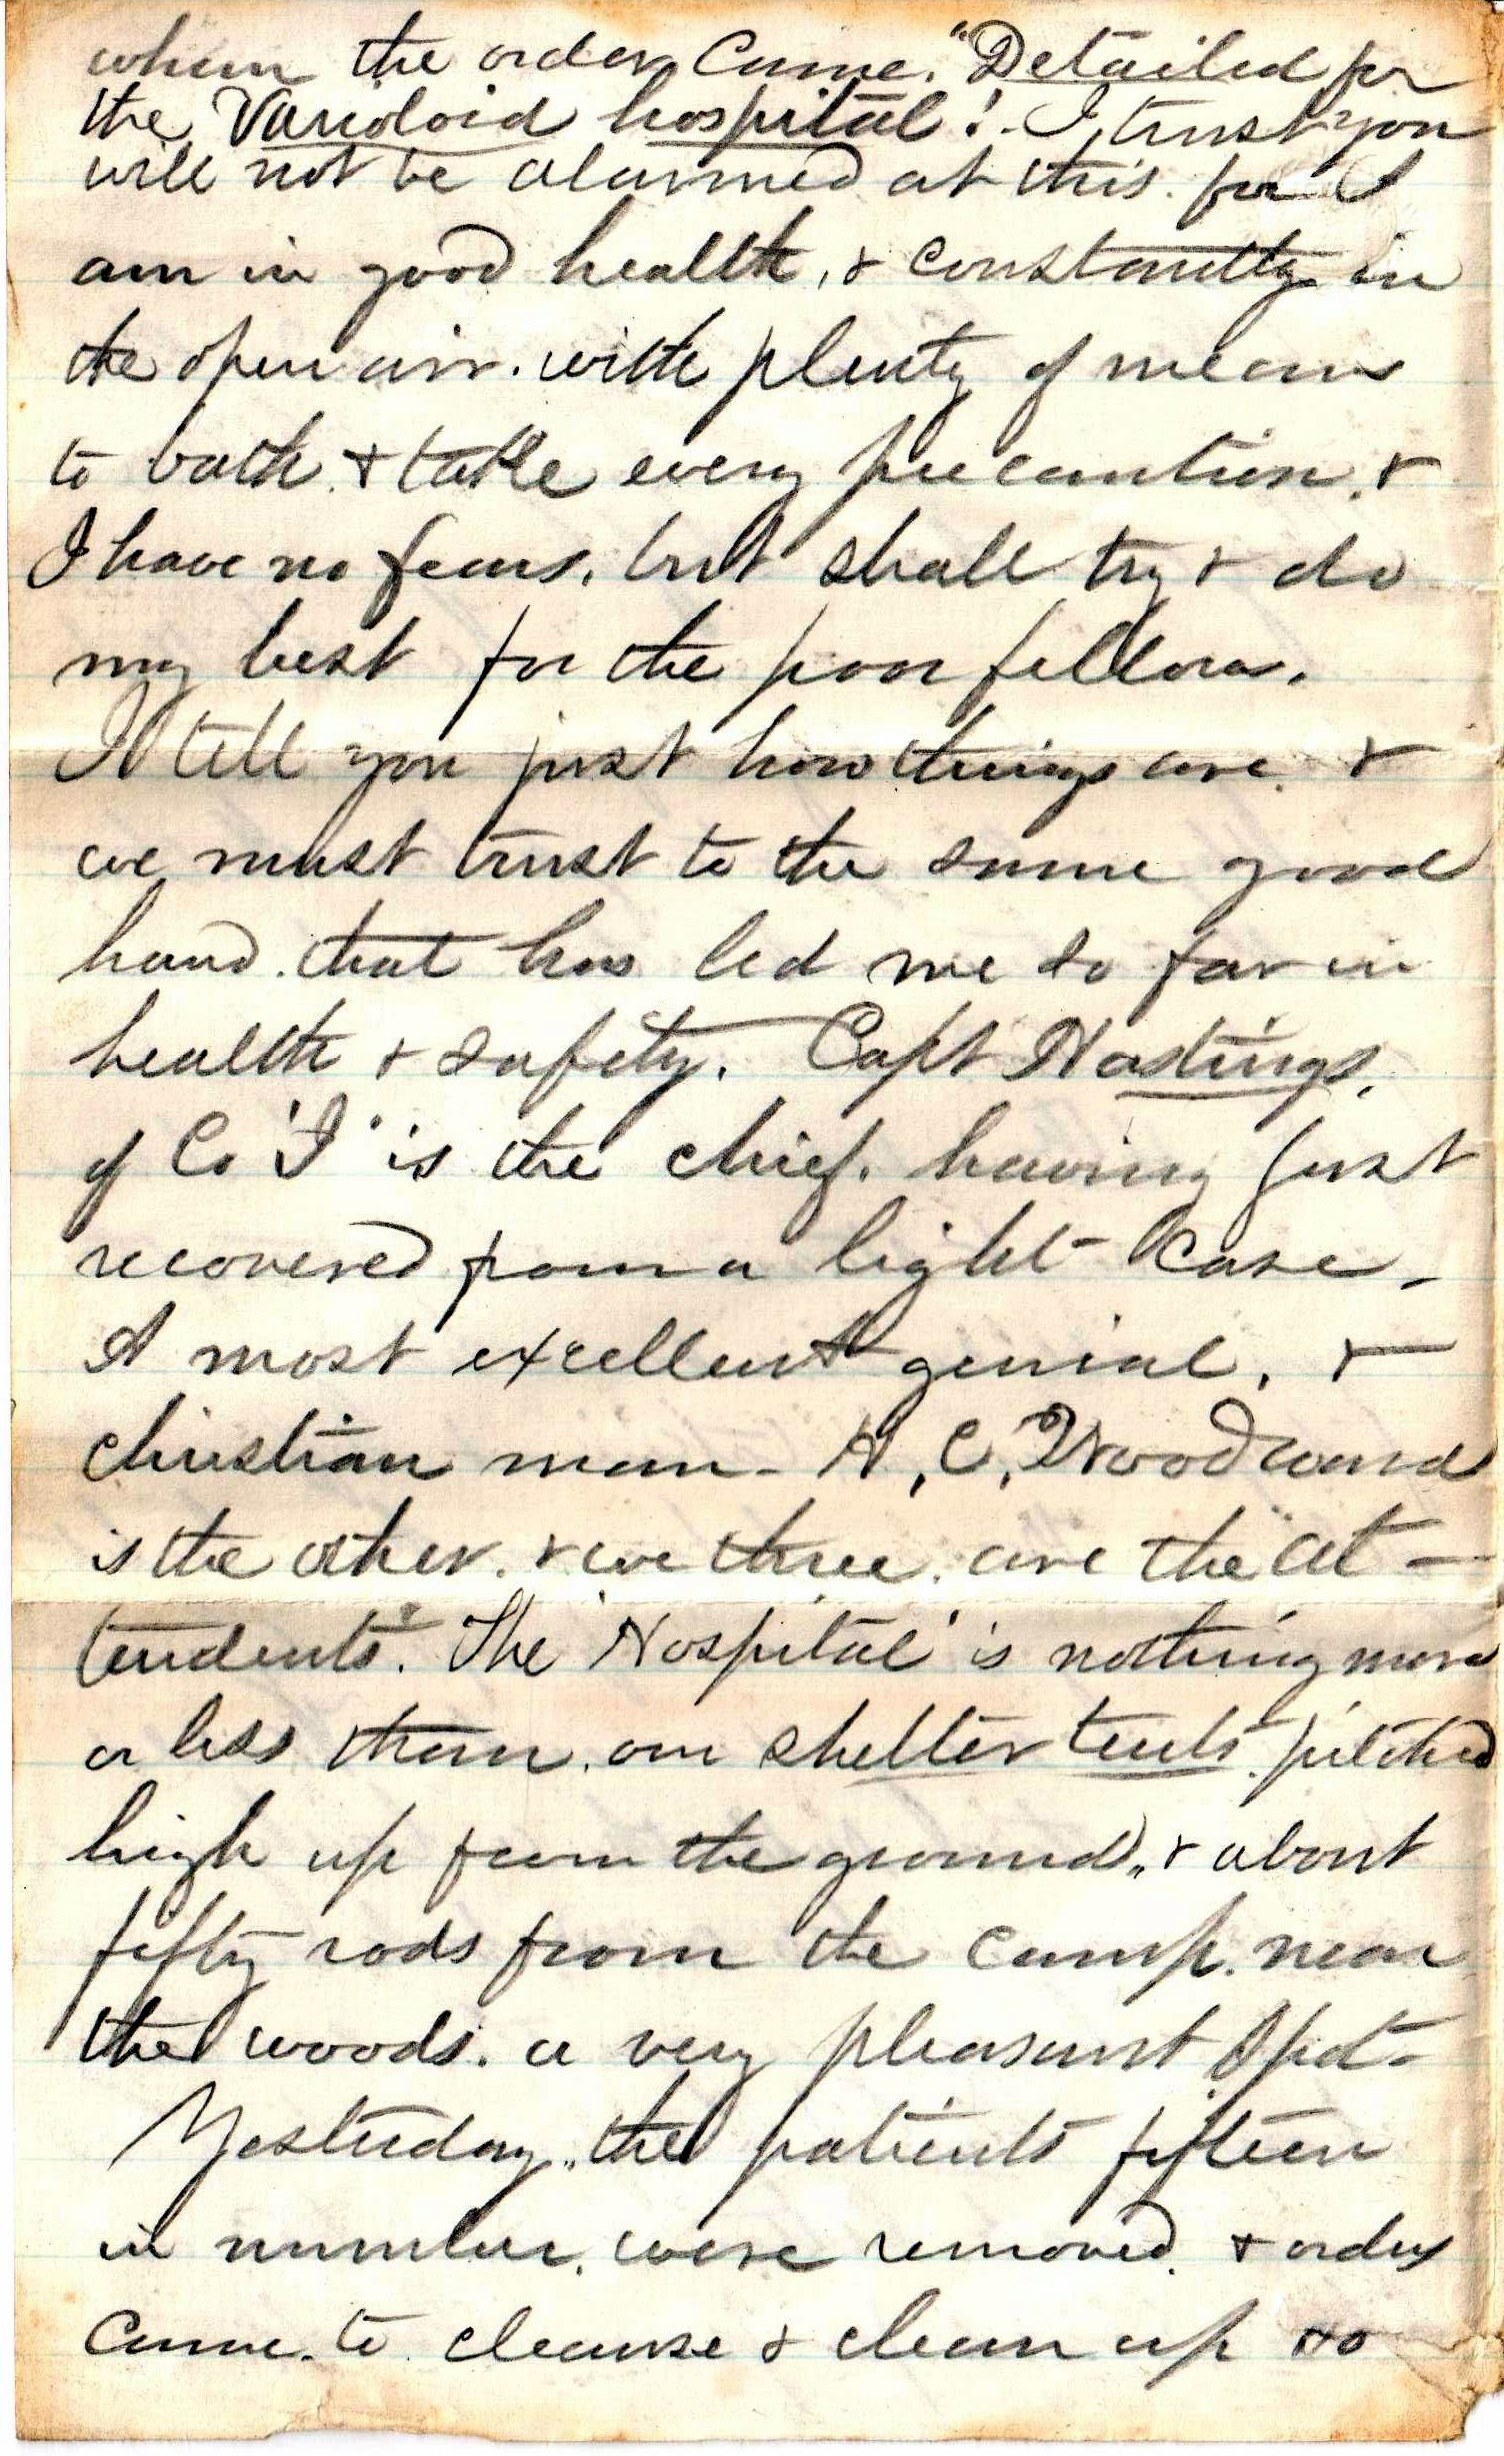 when the order Came. "Detailed for
the Varioloid hospital"! I trust you
will not be alarmed at this. for I
am in good health, & constantly in
the open air. with plenty of means
to bath. & take every precaution. &
I have no fears. but shall try & do
my best for the poor fellows.
I tell you just how things are. &
we must trust to the same good
hand. that has led me so far in
health & safety. Capt Hastings.
of Co "I" is the chief. having just
recovered from a light case -
A most excellent genial, &
christian man - H. C. Woodward
is the other. & we three. are the "at -
tendents". The "Hospital" is nothing more
or less than. our shelter tents. pitched
high up from the ground,, & about
fifty rods from the camp. near
the woods. a very pleasant spot -
Yesterday,, the patients fifteen
in number. were removed. & orders
came. to cleanse & clean up so